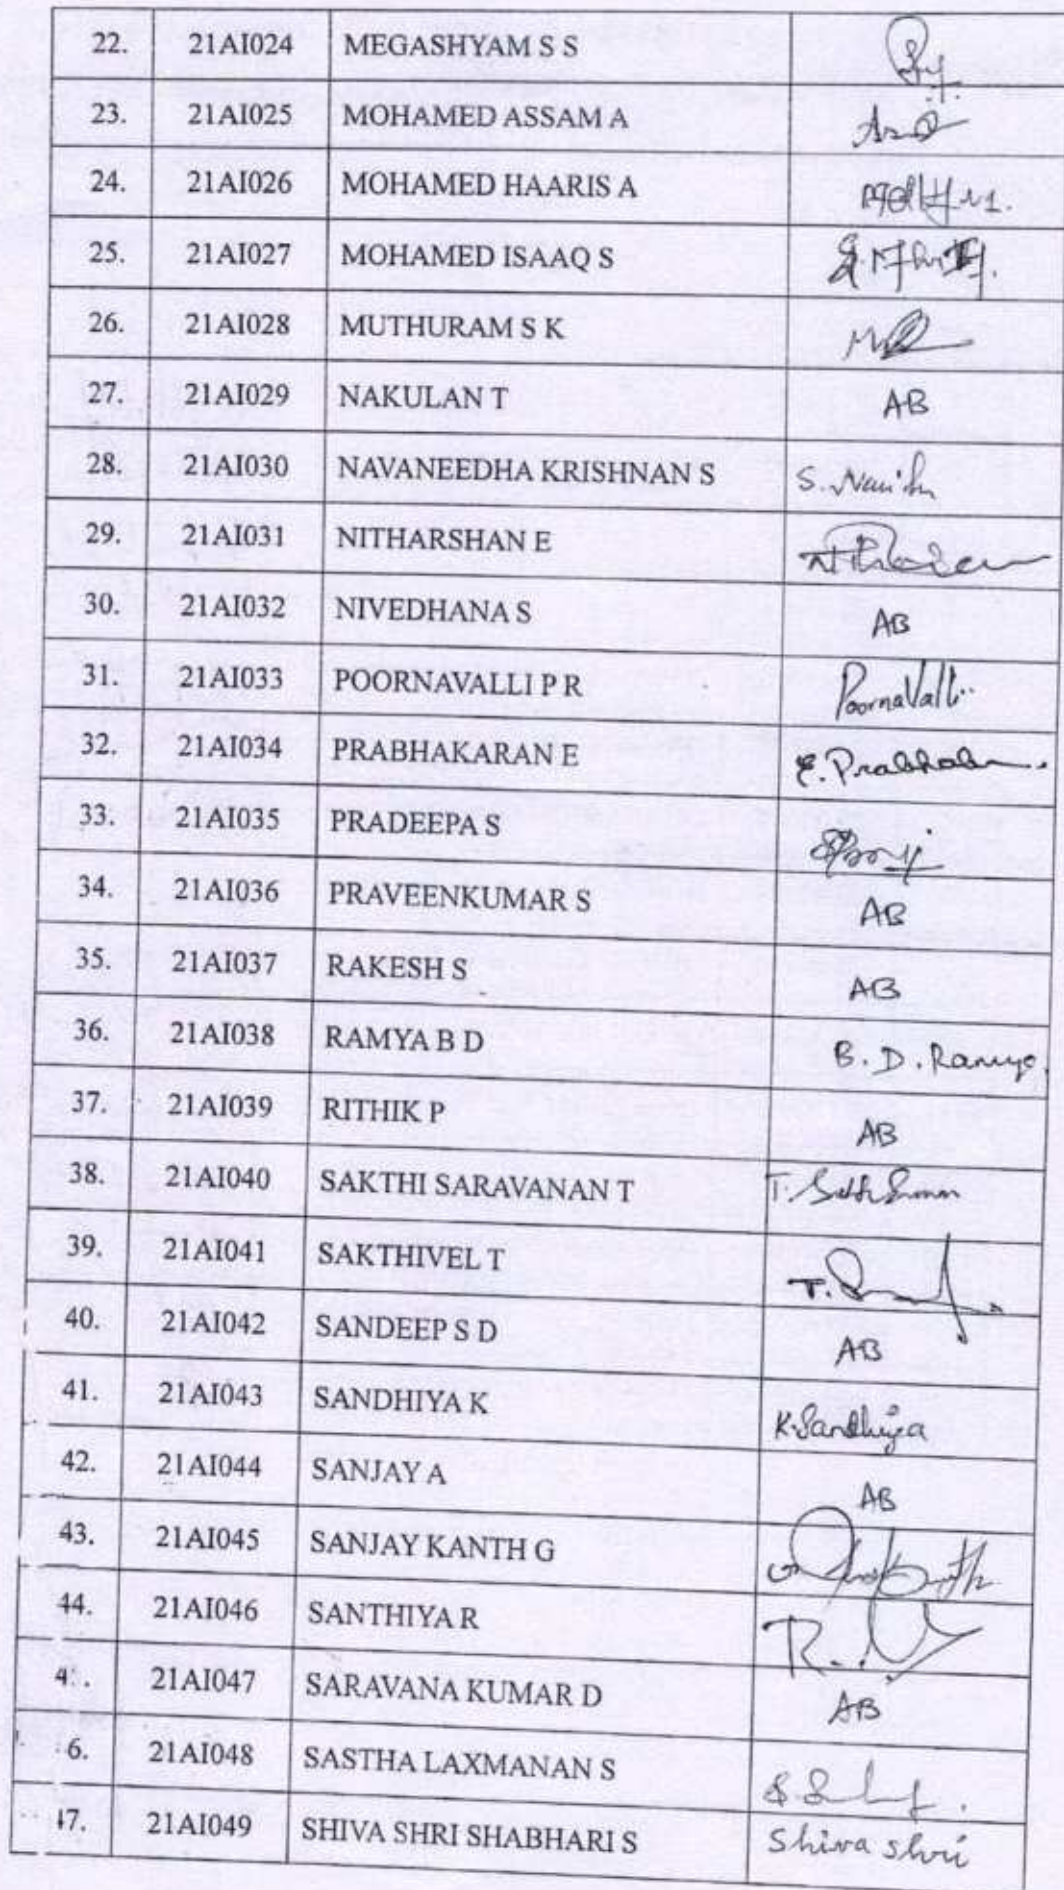 22. 21AI024 MEGASHYAM S S
23. 21AI025 MOHAMED ASSAM A
24. 21AI026 MOHAMED HAARIS A
25. 21AI027 MOHAMED ISAAQ S
26. 21AI028 MUTHURAM S K
27. 21AI029 NAKULAN T AB
28. 21AI030 NAVANEEDHA KRISHNAN S S.
29. 21AI031 NITHARSHAN E
30. 21AI032 NIVEDHANA S AB
31. 21AI033 POORNAVALLI P R PoornaValli
32. 21AI034 PRABHAKARAN E E.
33. 21AI035 PRADEEPA S
34. 21AI036 PRAVEENKUMAR S AB
35. 21AI037 RAKESH S AB
36. 21AI038 RAMYA B D B. D. Ramya
37. 21AI039 RITHIK P AB
38. 21AI040 SAKTHI SARAVANAN T T.
39. 21AI041 SAKTHIVEL T T.
40. 21AI042 SANDEEP S D AB
41. 21AI043 SANDHIYA K K.Sandhiya
42. 21AI044 SANJAY A AB
43. 21AI045 SANJAY KANTH G
44. 21AI046 SANTHIYA R R.
4 . 21AI047 SARAVANA KUMAR D AB
6. 21AI048 SASTHA LAXMANAN S
47. 21AI049 SHIVA SHRI SHABHARI S Shiva Shri